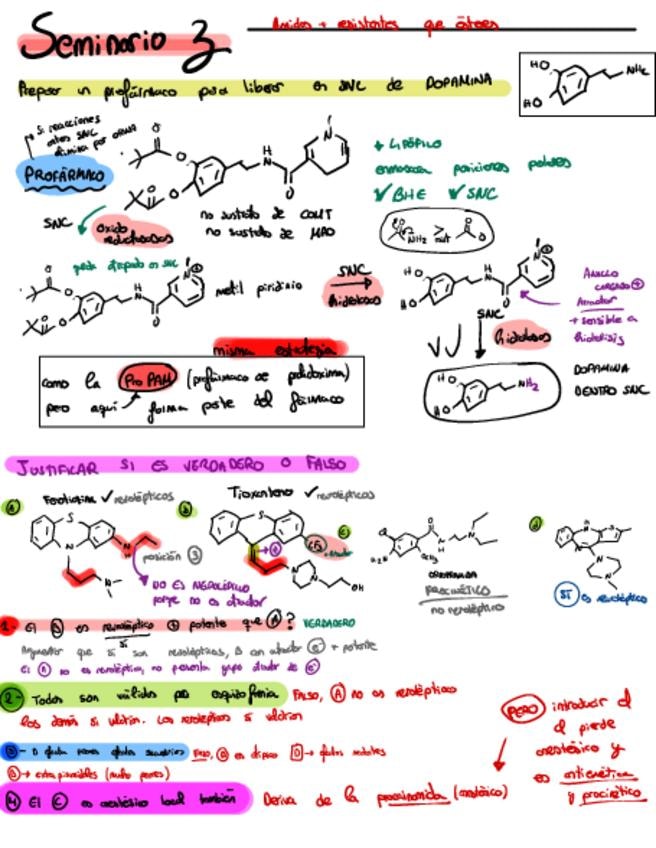 Seminario 3
que
Preparar un profármaco para liberar en SNC de DOPAMINA
HO
HO
NH₂
Si reacciones
antes SNC
PROFÁRMACO
+ LIPÓFILO
enmascara posiciones polares
✓ BHE ✓ SNC
SNC
oxido
reductasas
no sustrato de COMT
no sustrato de MAO
queda atrapado en SNC
metil piridinio
SNC
hidrolasas
ANILLO
CARGADO ⊕
Atractor
+ sensible a
hidrólisis
SNC
hidrolasas
DOPAMINA
DENTRO SNC
misma estrategia
como la Pro PAM (profármaco de pralidoxima)
pero aquí forma parte del fármaco
JUSTIFICAR SI ES VERDADERO O FALSO
a
Fenotiazina ✓ neurolépticos
b
Tioxanteno ✓ neurolépticos
c
d
posición 3
NO ES NEUROLÉPTICO
porque no es atractor
PROCINÉTICO
no neuroléptico
SÍ es neuroléptico
1. El B es neuroléptico ⊕ potente que A? VERDADERO
sí
Argumentar que sí son neurolépticos, B con atractor e⁻ + potente
El A no es neuroléptico, no presenta grupo atractor de e⁻
2- Todos son válidos para esquizofrenia FALSO, A no es neuroléptico
los demás sí valdrían. Los neurolépticos sí valdrían
3- D efectos secundarios FALSO, D es atípico D →
B → extrapiramidales (mucho peores)
4 El C es anestésico local también Deriva de la procainamida (anestésico)
PERO introducir Cl
pierde
anestésico y
es antiemética
y procinético